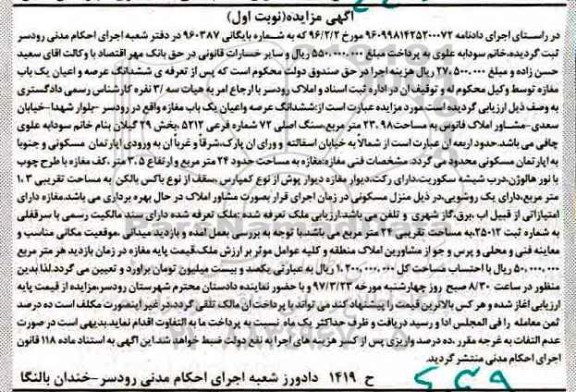 آگهی مزایده(نوبت اول)
در راستای اجرای دادنامه ۹۶۰۹۹۸۱۴۲۵۲۰۰۰۷۲ مورخ ۹۶/۲/۲ که به شماره بایگانی ۹۶۰۳۸۷ در دفتر شعبه اجرای احکام مدنی رودسر
ثبت گردیده،خانم سودابه علوی به پرداخت مبلغ ۵۵۰،۰۰۰،۰۰۰ ریال و سایر خسارات قانونی در حق بانک مهر اقتصاد با وکالت اقای سعید
حسن زاده و مبلغ ۲۷،۵۰۰،۰۰۰ ریال هزینه اجرا در حق صندوق دولت محکوم است که پس از تعرفه ی ششدانگ عرصه و اعیان یک باب
مغازه توسط وکیل محکوم له و توقیف آن در اداره ثبت اسناد و املاک رودسر با ارجاع امر به هیات سه /۳ نفره کارشناس رسمی دادگستری
به وصف ذیل ارزیابی گردیده است.مورد مزایده عبارت است از:ششدانگ عرصه واعیان یک باب مغازه واقع در رودسر -بلوار شهدا-خیابان
سعدی-مشاور املاک فانوس به مساحت۲۳،۹۸ متر مربع،سنگ اصلی ۷۲ شماره فرعی ۵۲۱۲ ،بخش ۲۹ گیلان بنام خانم سودابه علوی
چافی می باشد.حدود اربعه آن عبارت است از:شمالاً به خیابان اسفالته و ورای ان پارک،شرقاً و غرباً ان به ورودی آپارتمان مسکونی و جنوبا
به اپارتمان مسکونی محدود می گردد. مشخصات فنی مغازه:مغازه به مساحت حدود ۲۴ متر مربع و ارتفاع ۳،۵ متر ،کف مغازه با طرح چوب
با نور هالوژن،درب شیشه سکوریت،دارای رکت،دیوار مغازه دیوار پوش از نوع کمپارس،سقف از نوع باکس بالکن به مساحت تقریبی ۱۰،۳
متر مربع،دارای یک روشویی،در ذیل منزل مسکونی در زمان اجرای قرار بصورت مشاور املاک در حال بهره برداری می باشد.مغازه دارای
امتیازاتی از قبیل اب ،برق،گاز شهری و تلفن می باشد.ارزیابی ملک تعرفه شده :ملک تعرفه شده دارای سند مالکیت رسمی با سرقفلی
به شماره ثبت ۲۵۰۱۲،به مساحت تقریبی ۲۴ متر مربع می باشد.با توجه به بررسی بعمل امده و بازدید میدانی ،موقعیت مکانی مناسب و
معاینه فنی و محلی و پرس و جو از مشاورین املاک منطقه و کلیه عوامل موثر بر ارزش ملک،قیمت پایه مغازه در زمان بازدید هر متر مربع
۵۰،۰۰۰،۰۰۰ ریال با احتساب مساحت کل ۱،۲۰۰،۰۰۰،۰۰۰ ریال به عبارتی یکصد و بیست میلیون تومان براورد و تعیین می گردد.لذا بدین
منظور در ساعت ۸/۳۰ صبح روز چهارشنبه مورخه ۹۷/۳/۲۳ و با حضور نماینده دادستان محترم شهرستان رودسر،مزایده از قیمت پایه
ارزیابی اغاز شده و هر کس بالاترین قیمت را پیشنهاد کند می تواند با پرداخت ان مالک تلقی گردد.در غیر اینصورت مکلف است ده درصد
ثمن معامله را فی المجلس ادا و رسید دریافت و ظرف حداکثر یک ماه نسبت به پرداخت ما به التفاوت اقدام نماید،بدیهی است در صورت
عدم التفات به غرجه مقرر ،ده درصد واریزی پس از کسر هزینه های اجرا به نفع دولت ضبط خواهد شد.این آگهی به استناد ماده ۱۱۸ قانون
اجرای احکام مدنی منتشر گردید.
ح ۱۴۱۹ دادورز شعبه اجرای احکام مدنی رودسر-خندان بالنگا